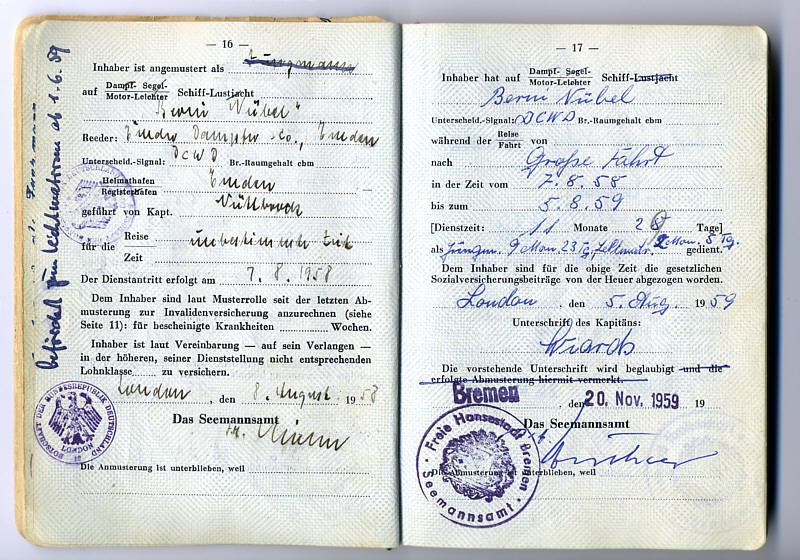 — 16 —
Inhaber ist angemustert als Jungmann
auf Dampf- Segel- Motor-Leichter Schiff-Lustjacht
"Bernd Nübel"
Reeder: Emder Dampfer Co., Emden
Unterscheid.-Signal: DCWD Br.-Raumgehalt cbm
Heimathafen Registerhafen Emden
geführt von Kapt.
für die Reise Zeit unbestimmte Zeit
Der Dienstantritt erfolgt am 7. 8. 1958
Dem Inhaber sind laut Musterrolle seit der letzten Ab-
musterung zur Invalidenversicherung anzurechnen (siehe
Seite 11): für bescheinigte Krankheiten Wochen.
Inhaber ist laut Vereinbarung — auf sein Verlangen —
in der höheren, seiner Dienststellung nicht entsprechenden
Lohnklasse zu versichern.
London, den 8. August 1958
Das Seemannsamt
Die Anmusterung ist unterblieben, weil
befördert zum Leichtmatrosen ab 1.6.59
BOTSCHAFT DER BUNDESREPUBLIK DEUTSCHLAND
LONDON
— 17 —
Inhaber hat auf Dampf- Segel- Motor-Leichter Schiff-Lustjacht
Bernd Nübel
Unterscheid.-Signal: DCWD Br.-Raumgehalt cbm
während der Reise Fahrt von
nach Große Fahrt
in der Zeit vom 7. 8. 58
bis zum 5. 8. 59
[Dienstzeit: 11 Monate 28 Tage]
als Jungm. 9 Mon. 23 Tg, Leichtmatr. 2 Mon. 5 Tg. gedient.
Dem Inhaber sind für die obige Zeit die gesetzlichen
Sozialversicherungsbeiträge von der Heuer abgezogen worden.
London, den 5. Aug. 1959
Unterschrift des Kapitäns:
Wiards
Die vorstehende Unterschrift wird beglaubigt und die
erfolgte Abmusterung hiermit vermerkt.
Bremen, den 20. Nov. 1959 19
Das Seemannsamt
Die Abmusterung ist unterblieben, weil
Freie Hansestadt Bremen
Seemannsamt